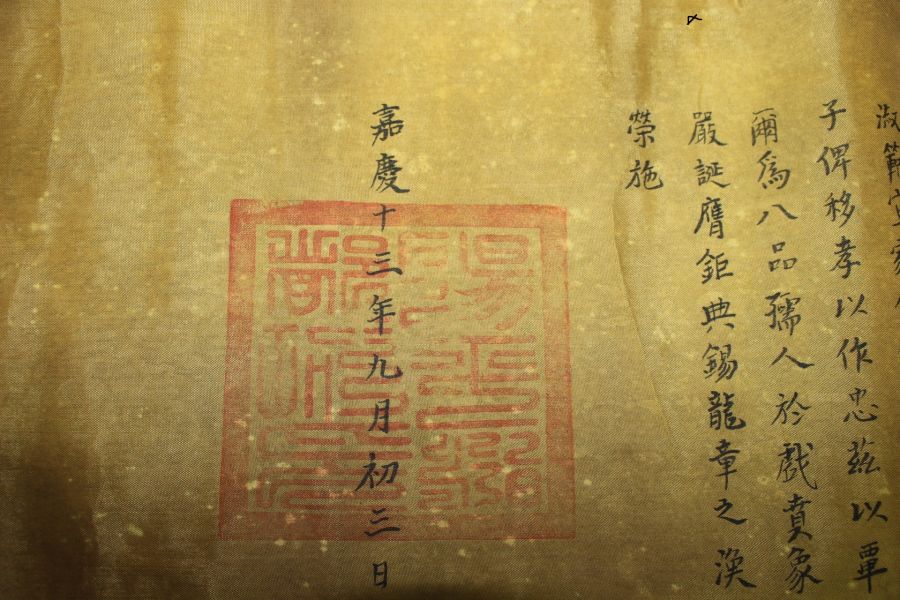 淑範宜家
子俾移孝以作忠茲以覃
爾爲八品孺人於戲賁象
嚴誕膺鉅典錫龍章之渙
榮施
嘉慶十三年九月初三日